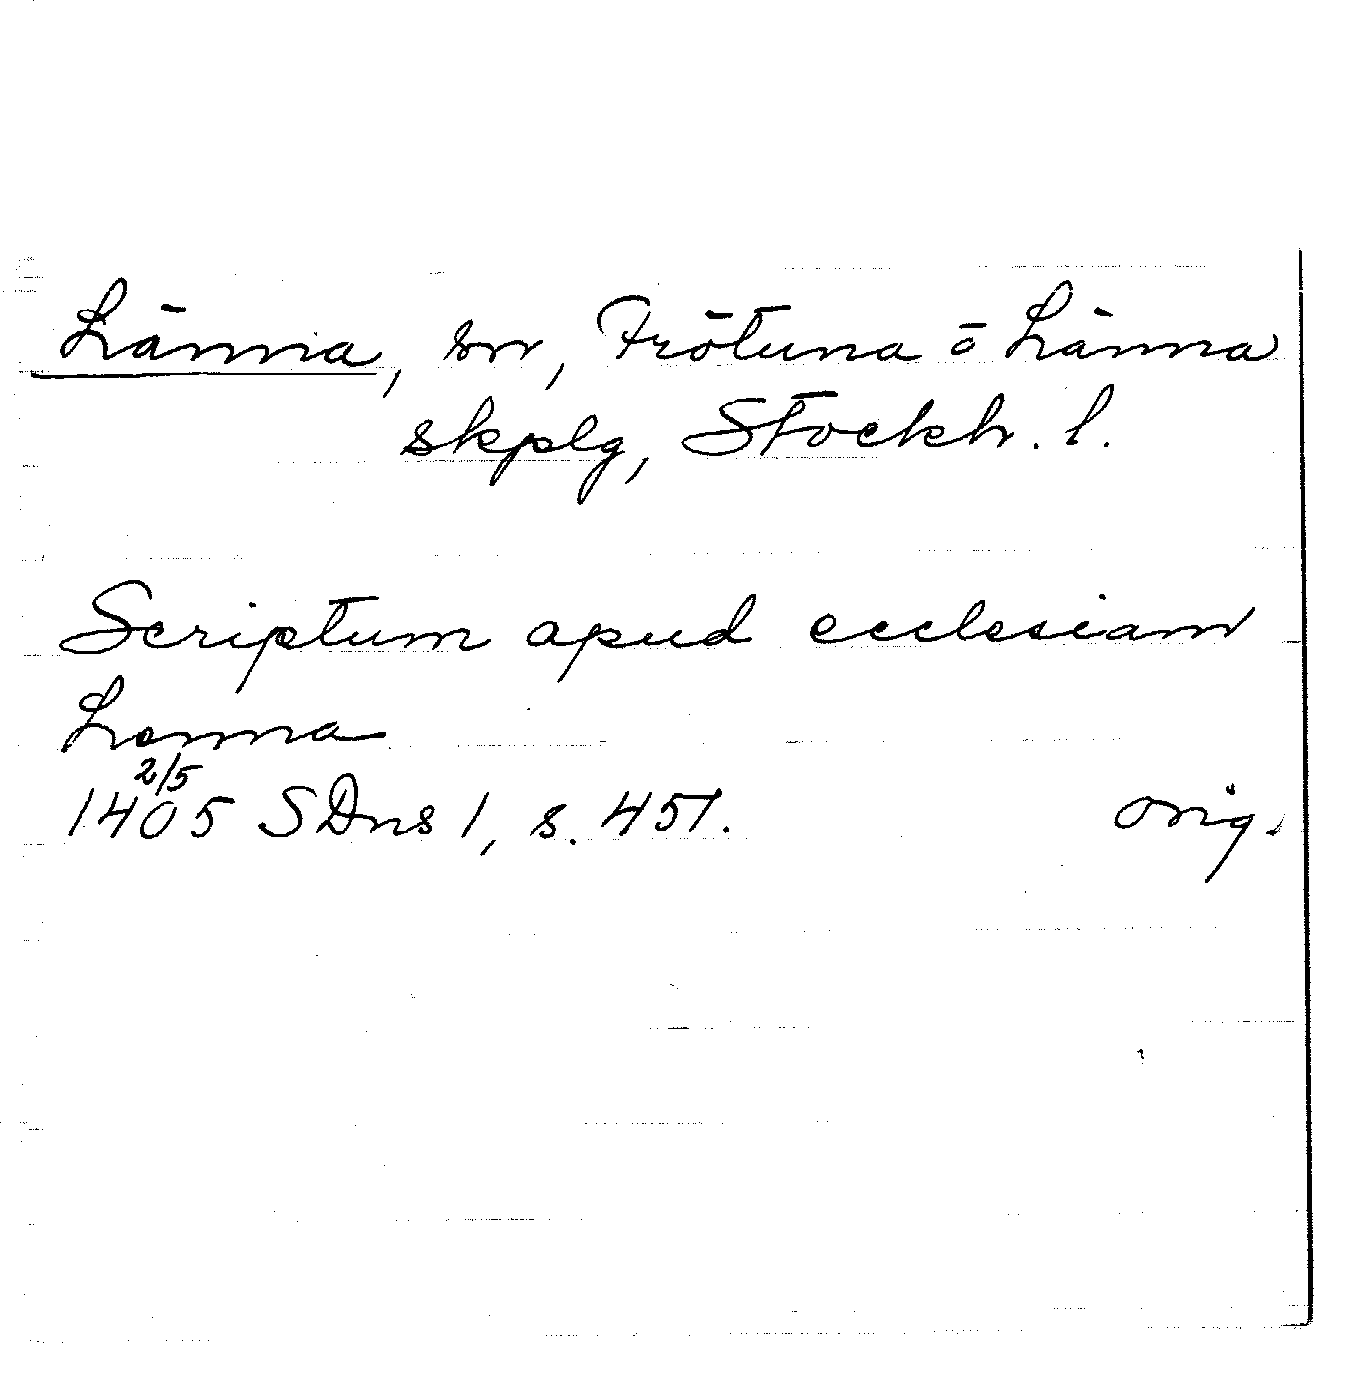 Länna, sn, Frötuna o Länna
skplg, Stockh. l.
Scriptum apud ecclesiam
Lenna
2/5
1405 SDns 1, s. 451. orig.